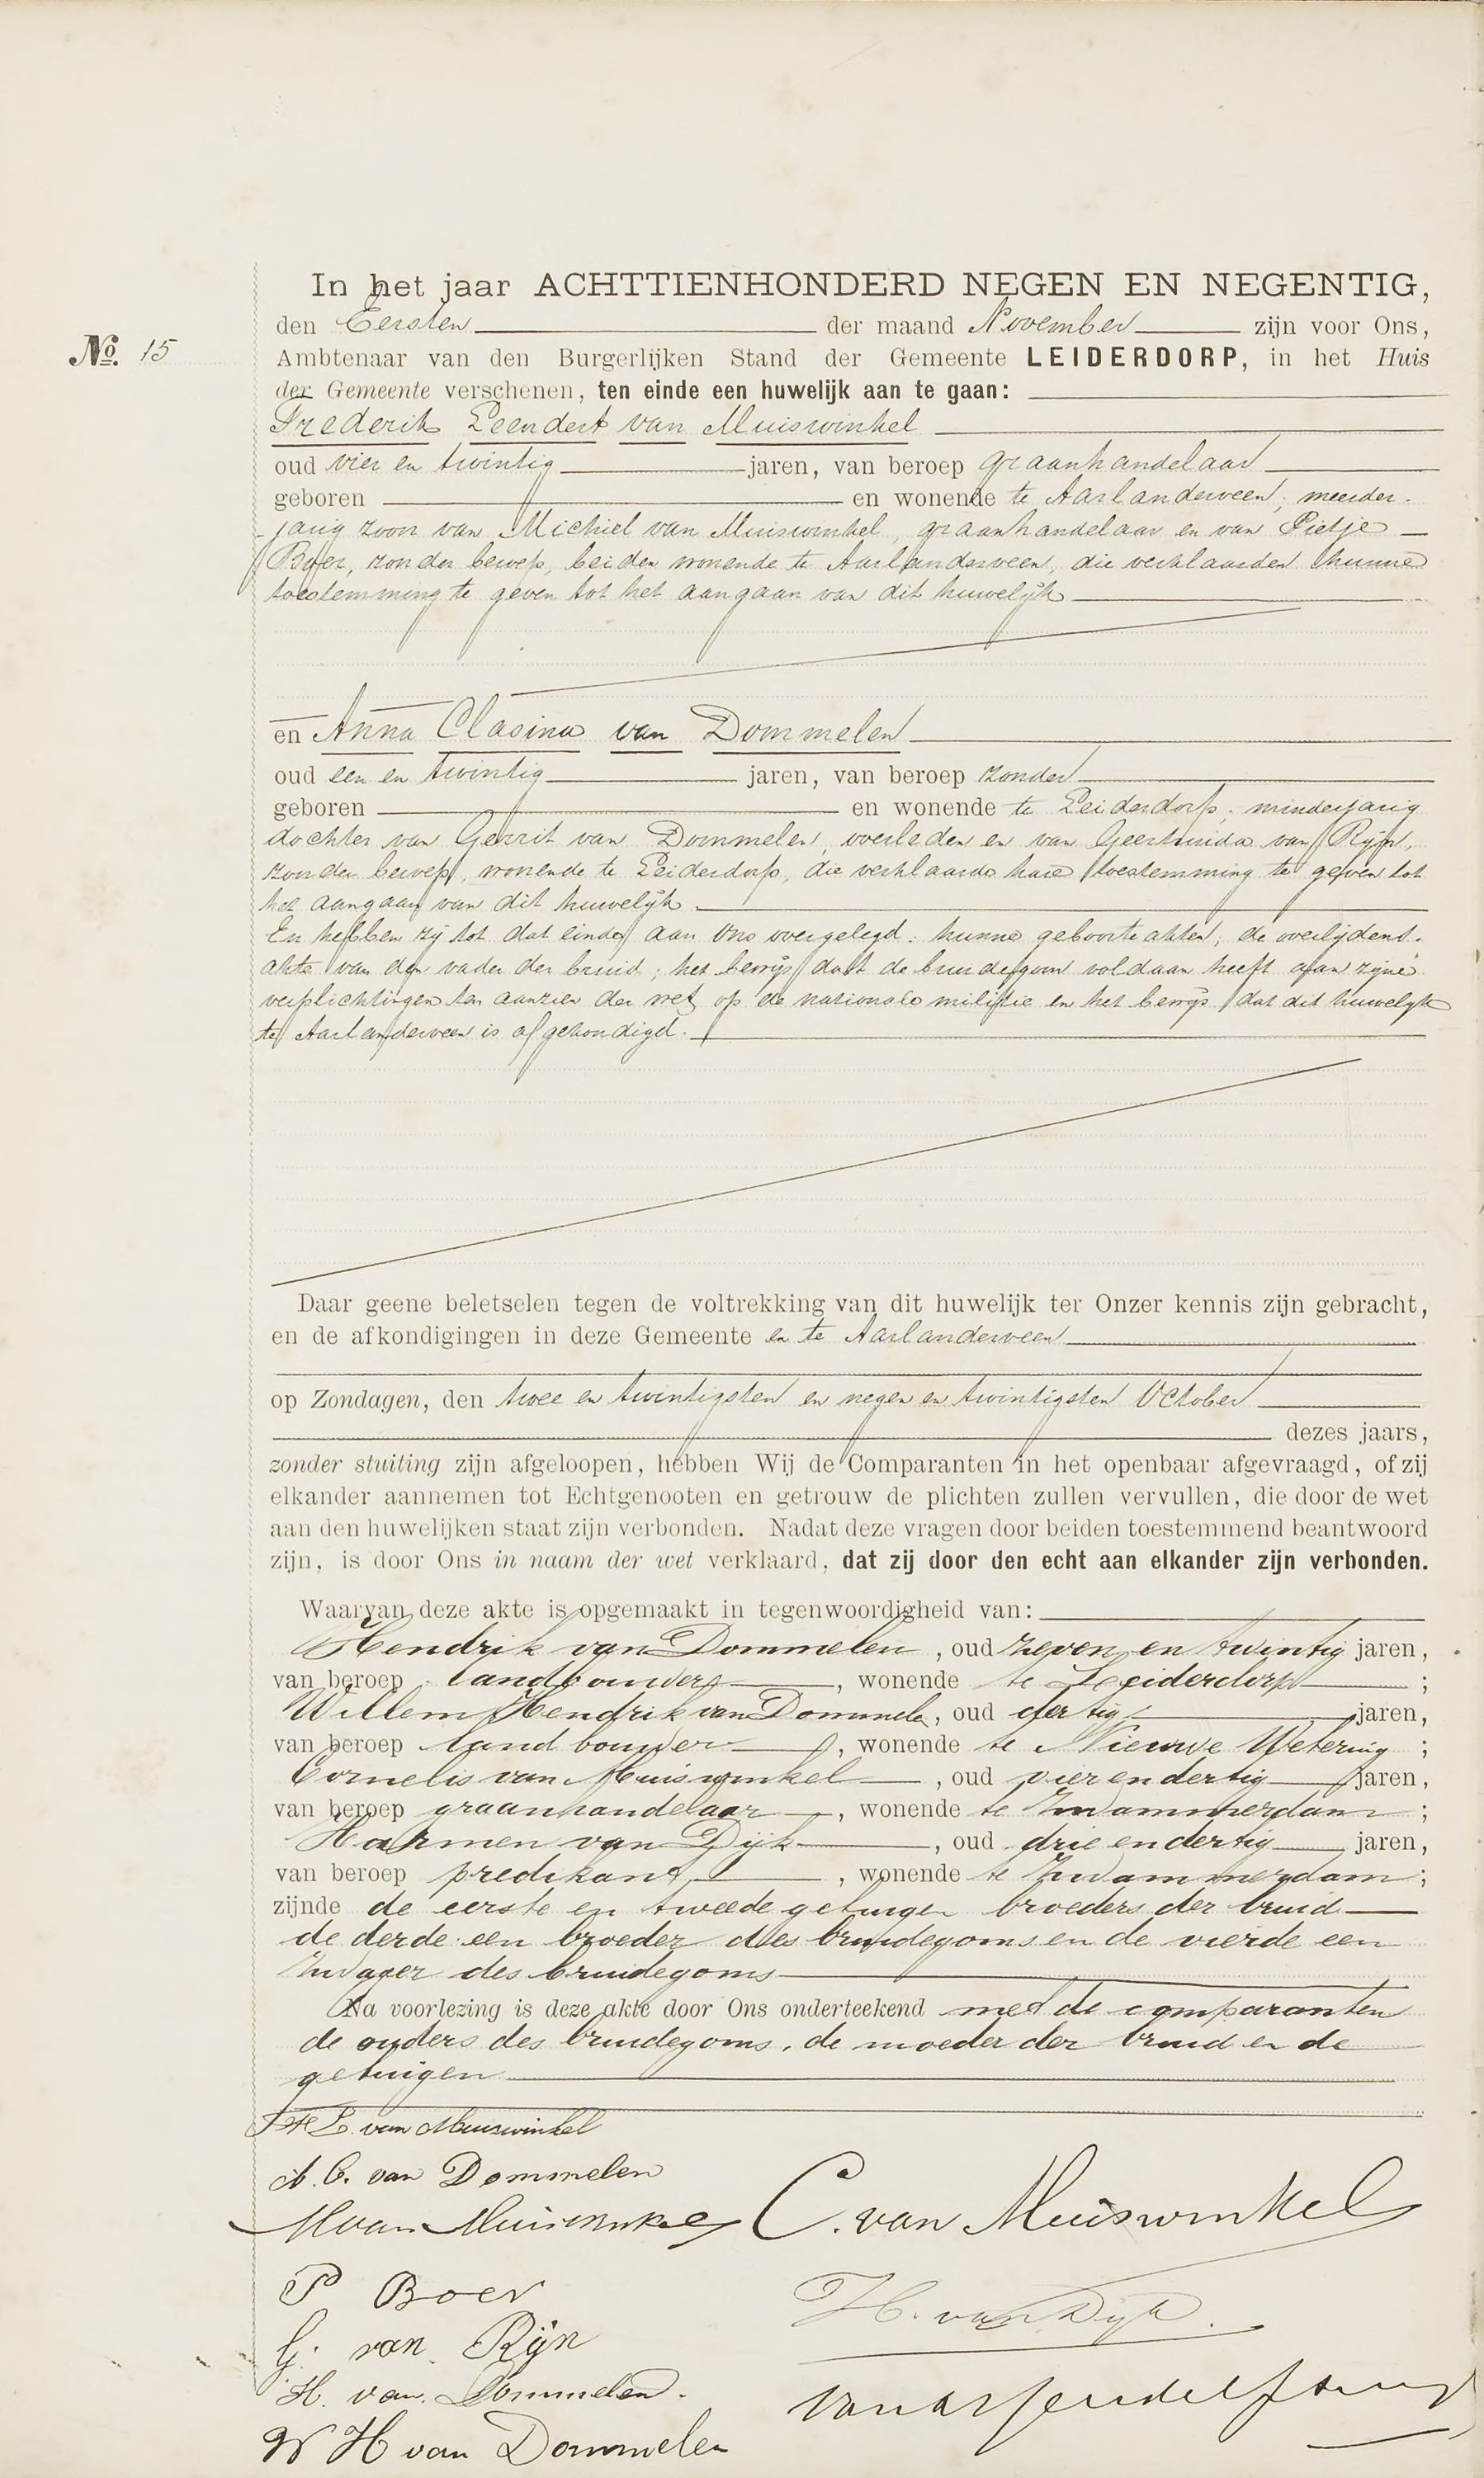 In het jaar ACHTTIENHONDERD NEGEN EN NEGENTIG,
den Eersten der maand November zijn voor Ons,
No. 15
Ambtenaar van den Burgerlijken Stand der Gemeente LEIDERDORP, in het Huis
der Gemeente verschenen, ten einde een huwelijk aan te gaan:
Frederik Leendert van Muiswinkel
oud vier en twintig jaren, van beroep graanhandelaar
geboren en wonende te Aarlanderveen, meerder-
jarig zoon van Michiel van Muiswinkel, graanhandelaar en van Pietje
Boer, zonder beroep, beiden wonende te Aarlanderveen, die verklaarden hunne
toestemming te geven tot het aangaan van dit huwelijk
en Anna Clasina van Dommelen
oud een en twintig jaren, van beroep zonder
geboren en wonende te Leiderdorp, minderjarig
dochter van Gerrit van Dommelen, overleden en van Geertruida van Rijn,
zonder beroep, wonende te Leiderdorp, die verklaarde hare toestemming te geven tot
het aangaan van dit huwelijk
En hebben zij tot dat einde aan Ons overgelegd: hunne geboorte akten, de overlijdens-
akte van den vader der bruid; het bewijs dat de bruidegom voldaan heeft aan zijne
verplichtingen ten aanzien der wet op de nationale militie en het bewijs dat dit huwelijk
te Aarlanderveen is afgekondigd.
Daar geene beletselen tegen de voltrekking van dit huwelijk ter Onzer kennis zijn gebracht,
en de afkondigingen in deze Gemeente en te Aarlanderveen
op Zondagen, den twee en twintigsten en negen en twintigsten October
dezes jaars,
zonder stuiting zijn afgeloopen, hebben Wij de Comparanten in het openbaar afgevraagd, of zij
elkander aannemen tot Echtgenooten en getrouw de plichten zullen vervullen, die door de wet
aan den huwelijken staat zijn verbonden. Nadat deze vragen door beiden toestemmend beantwoord
zijn, is door Ons in naam der wet verklaard, dat zij door den echt aan elkander zijn verbonden.
Waarvan deze akte is opgemaakt in tegenwoordigheid van:
Hendrik van Dommelen, oud zeven en twintig jaren,
van beroep landbouwer, wonende te Leiderdorp;
Willem Hendrik van Dommelen, oud dertig jaren,
van beroep landbouwer, wonende te Nieuwe Wetering;
Cornelis van Muiswinkel, oud vier en dertig jaren,
van beroep graanhandelaar, wonende te Zwammerdam;
Harmen van Dijk, oud drie en dertig jaren,
van beroep predikant, wonende te Zwammerdam;
zijnde de eerste en tweede getuigen broeders der bruid
de derde een broeder des bruidegoms en de vierde een
zwager des bruidegoms
Na voorlezing is deze akte door Ons onderteekend met de comparanten
de ouders des bruidegoms, de moeder der bruid en de
getuigen
F. L. van Muiswinkel
A. C. van Dommelen
M van Muiswinkel C. van Muiswinkel
P Boer
H. van Dijk.
G. van Rijn
H. van Dommelen.
W H van Dommelen